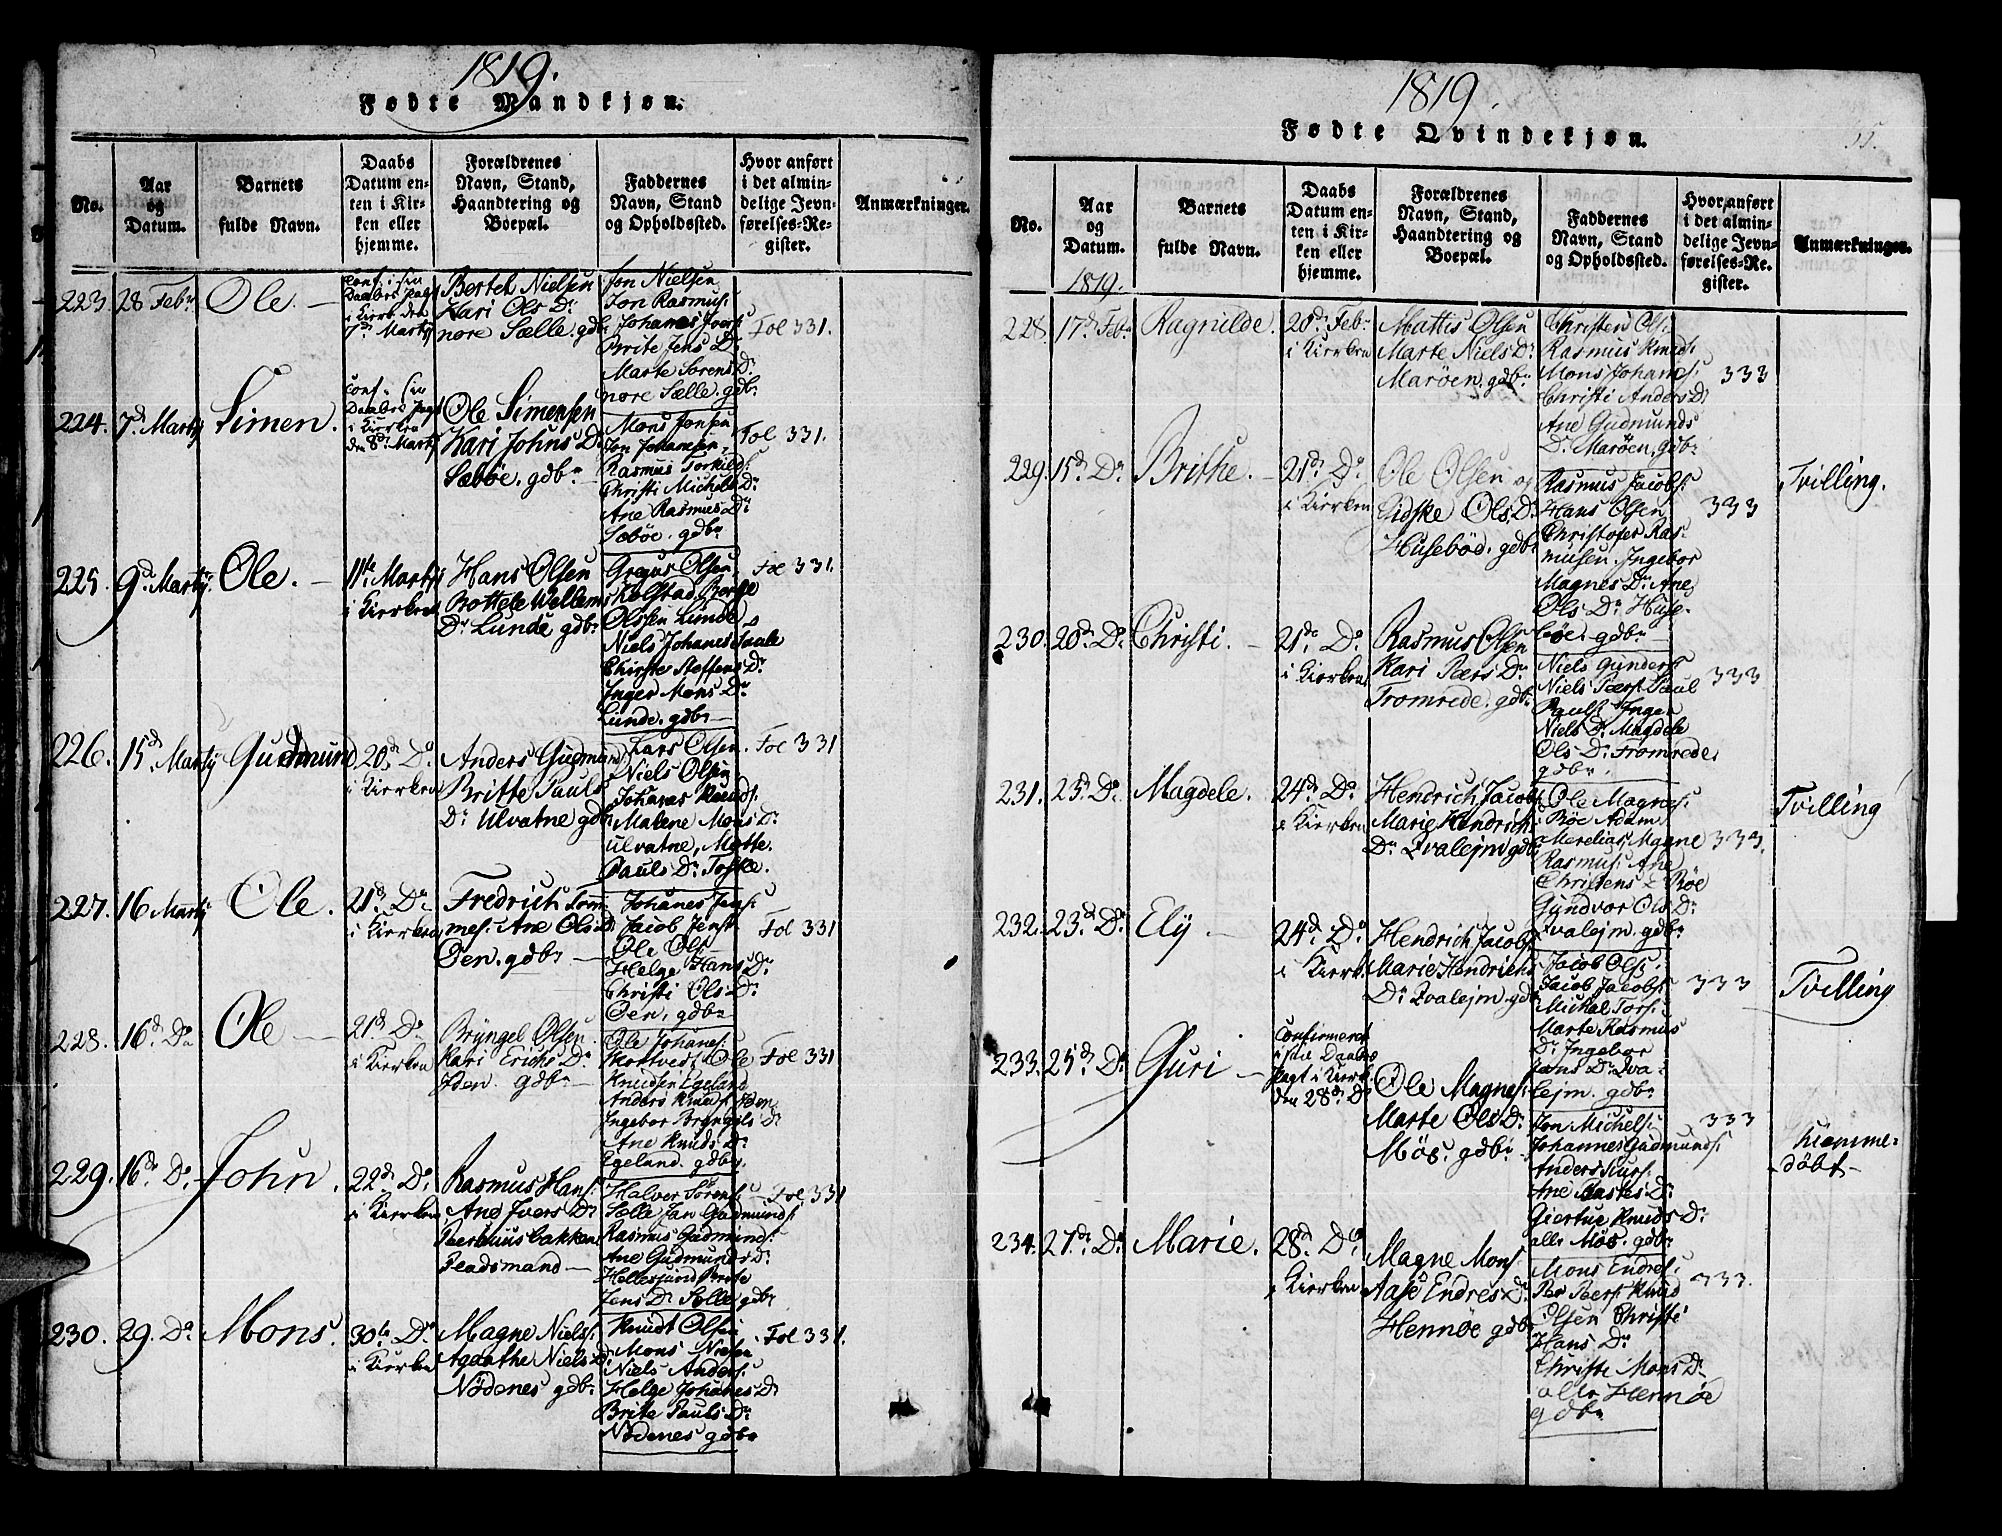 1819.
Fødte Mandkjøn.
No.
Aar
og
Datum.
Barnets
fulde Navn.
Daabs
Datum en-
ten i Kir-
ken eller
hjemme.
Forældrenes
Navn, Stand,
Haandtering og
Boepæl.
Faddernes
Navn, Stand
og Opholdssted.
Hvor anført
i det almin-
delige Jevn-
førelses-Re-
gister.
Anmærkninger.
223. 28 Febr Ole.
i Kirk den
7de Martÿ
Bertel Nielsen
Kari Ols Dr
nore Sælle. gdbr
Jon Nielsen
Jon Rasmus:
Johanes Ivers:
Brite Jens Dr
Marte Sorens Dr
nore Sælle. gdbr
Fol 331.
224. 7d Martÿ Simen.
i Kierken
den 8de Martÿ
Ole Simensen
Kari Johns Dr
Sæbøe. gdbr
Mons Jonsen
Jon Johansen
Rasmus Torkilds:
Christi Michels Dr
Ane Rasmus Dr
Sæbøe. gdbr
Fol 331.
225. 9d Martÿ. Ole.
11te Martÿ
i Kierken
Hans Olsen
Bottele Wellems
Dr Lunde gdbr
Gregus Olsen
Kolstad Børge
Olssen Lunde
Niels Johanes
Steffens Dr
Inger Mons Dr
Lunde. gdbr
Fol 331.
226. 15d Martÿ Gudmund
20d Do
i Kierken
Anders Gudmund
Britte Pauls
Dr Ulvatne gdbr
Lars Olsen.
Niels Olsen
Johanes Knuds:
Malene Mons Dr
Ulvatne, Mette
Pauls Dr Toske.
Fol 331
227. 16 Martÿ Ole.
21d Do
i Kierken
Fredrich Tom-
mes: Ane Ols Dr
Øen. gdbr
Johanes Jens:
Jacob Jens:
Ole Ols:
Helge Hans Dr
Christi Ols Dr
Øen, gdbr
Fol 331
228. 16d Do Ole
21d Do
i Kierken
Brÿngel Olsen
Kari Erichs Dr
Iden. gdbr
Ole Johanes:
Mortveds: Ole
Knudsen Egeland
Anders Knuds:
Ingebor Brÿngels Dr
Ane Knuds Dr
Egeland. gdbr
Fol 331
229. 16d Do John.
22d Do
i Kierken
Rasmus Hans:
Ane Ivers Dr
Halver Sørens:
Sælle Jan Gudmunds:
Rasmus Gudmunds:
Ane Gudmunds Dr
Hellesund Brite
Jens Dr Sælle gdbr
Fol 331
230. 29. Do Mons.
30te Do
i Kierken
Magne Niels:
Agaathe Niels Dr
Nødenes gdbr
Knudt Olsen
Mons Nielsen
Niels Anders:
Helge Johanes Dr
Brite Pauls Dr
Nødenes gdbr
Fol 331.
1819.
Fødte Qvindekjøn.
55.
No.
Aar
og
Datum.
1819.
Barnets
fulde Navn.
Daabs
Datum en-
ten i Kir-
ken eller
hjemme.
Forældrenes
Navn, Stand,
Haandtering og
Boepæl.
Faddernes
Navn, Stand
og Opholdssted.
Hvor anført
i det almin-
delige Jevn-
førelses-Re-
gister.
Anmærkninger.
228. 17d Febr Ragnilde.
20d Febr
i Kierken
Mattis Olsen
Marte Niels Dr
Marøen. gdbr
Christen Ols:
Rasmus Knuds:
Mons Johanes:
Christi Anders Dr
Ane Gudmunds
Dr Marøen, gdbr
333
229. 15d Do Brithe.
21d Do
i Kierken
Ole Olsen og
Gidske Ols Dr
Husebød. gdbr
Rasmus Jacobs:
Hans Olsen
Christofer Ras-
musen. Ingebor
Magnes Dr Ane
Ols Dr Huse-
bøe. gdbr
333
Tvilling.
230. 20d Do Christi.
21de Do
i Kierken
Rasmus Olsen
Kari Pærs Dr
Fromrede. gdbr
Niels Gunders:
Niels Pærs: Paul
Pauls: Inger
Niels Dr Magdele
Ols Dr Fromrede,
gdbr.
333
231. 23d Do Magdele.
24d Do
i Kierken
Hendrich Jacobs
Marie Hendrich:
Dr Qvalejm gdbr
Ole Magnes:
Bøe Adam
Merelias, Magne
Rasmus: Ane
Christens Dr Bøe
Gÿndvor Ols Dr
Qvalejm. gdbr
333.
Tvilling
232. 23d Do Elÿ
24d Do
i Kierk:
Hendrich Jacobs
Marie Hendrichs
Dr Qvalejm. gdbr
Jacob Ols:
Jacob Jacobs:
Mickal Tors:
Marte Rasmus
Dr Ingebor
Jans Dr Qva-
lejm. gdbr
333
Tvilling
233. 25d Do Guri
Confirmeret
i sin Daabs
Pagt i Kierk:
den 28de Do
Ole Magnes:
Marte Ols Dr
Møs. gdbr
Jon Michels:
Johannes Gudmunds:
Anders
Giertue Knuds Dr
alle Møs. gdbr
333
Hiemme-
døbt
234. 27d Do Marie.
28d Do
i Kierken
Magne Mons:
Aase Endres Dr
Hennøe gdbr
Mons Endres:
Per Peers: Knud
Olsen Christi
Hans Dr
Christe Mons Dr
alle Hennøe
gdbr
333.